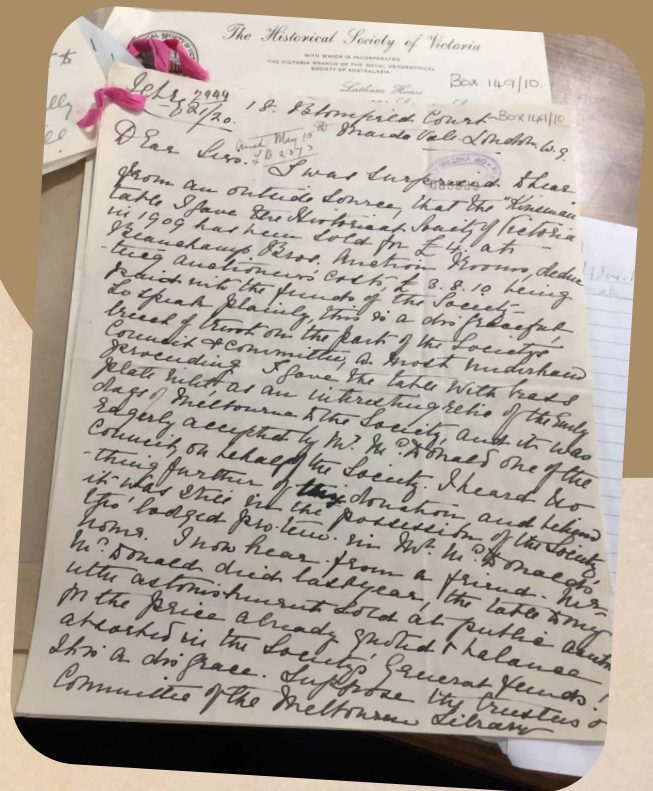 The Historical Society of Victoria
WITH WHICH IS INCORPORATED
THE VICTORIA BRANCH OF THE ROYAL GEOGRAPHICAL
SOCIETY OF AUSTRALASIA
Latham House
Box 149/10.
Box 141/10
18. Blomfield Court
Maida Vale. London. W.9.
May 15th
Dear Sirs. I was surprised to hear
from an outside source, that the "Kinsman
table I gave the Historical Society of Victoria
in 1909 has been sold for £4. at
Beauchamp Bros. Auction Rooms, deduc
-ting auctioneers' costs, £3.8.10 being
paid into the funds of the Society.
To speak plainly, this is a disgraceful
breech of trust on the part of the Society's
Council & Committee, a most underhand
proceeding. I gave the table with brass
plate inlet, as an interesting relic of the Early
days of Melbourne to the Society, and it was
eagerly accepted by Mr. McDonald one of the
Council on behalf of the Society. I heard no
-thing further of this donation, and
it was still in the possession of the Society,
tho' lodged pro-tem. in Mr. McDonald's
home. I now hear from a friend. Mr.
McDonald died last year, the table to my
utter astonishment sold at public
for the price already quoted & balance
absorbed in the Society's General funds!
It is a disgrace. Suppose the trustees
Committee of the Melbourne Library